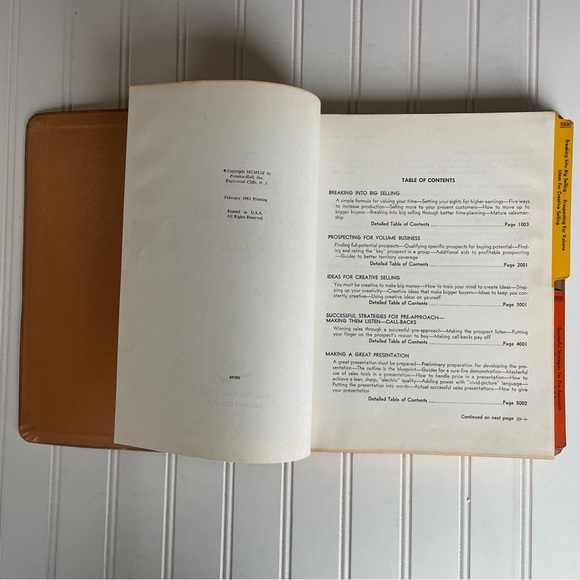 © Copyright MCMLIX by
Prentice-Hall, Inc.
Englewood Cliffs, N. J.
February 1963 Printing
Printed in U.S.A.
All Rights Reserved
TABLE OF CONTENTS
BREAKING INTO BIG SELLING
A simple formula for valuing your time—Setting your sights for higher earnings—Five ways
to increase production—Selling more to your present customers—How to move up to
bigger buyers—Breaking into big selling through better time-planning—Mature salesman-
ship
Detailed Table of Contents Page 1003
PROSPECTING FOR VOLUME BUSINESS
Finding full-potential prospects—Qualifying specific prospects for buying potential—Find-
ing and rating the "key" prospect in a group—Additional aids to profitable prospecting
—Guides to better territory coverage
Detailed Table of Contents Page 2001
IDEAS FOR CREATIVE SELLING
You must be creative to make big money—How to train your mind to create ideas—Step-
ping up your creativity—Creative ideas that make bigger buyers—Ideas to keep you con-
stantly creative—Using creative ideas on yourself
Detailed Table of Contents Page 3001
SUCCESSFUL STRATEGIES FOR PRE-APPROACH—
MAKING THEM LISTEN—CALL-BACKS
Winning sales through a successful pre-approach—Making the prospect listen—Putting
your finger on the prospect's reason to buy—Making call-backs pay off
Detailed Table of Contents Page 4001
MAKING A GREAT PRESENTATION
A great presentation must be prepared—Preliminary preparation for developing the pre-
sentation—The outline is the blueprint—Guides for a sure-fire demonstration—Masterful
use of sales tools in a presentation—How to handle price in a presentation—How to
achieve a lean, sharp, "electric" quality—Adding power with "vivid-picture" language—
Putting the presentation into words—Actual successful sales presentations—How to
Detailed Table of Contents Page 5002
Continued on next page
1000
Breaking Into Big Selling . . Prospecting For Volume .
Ideas For Creative Selling